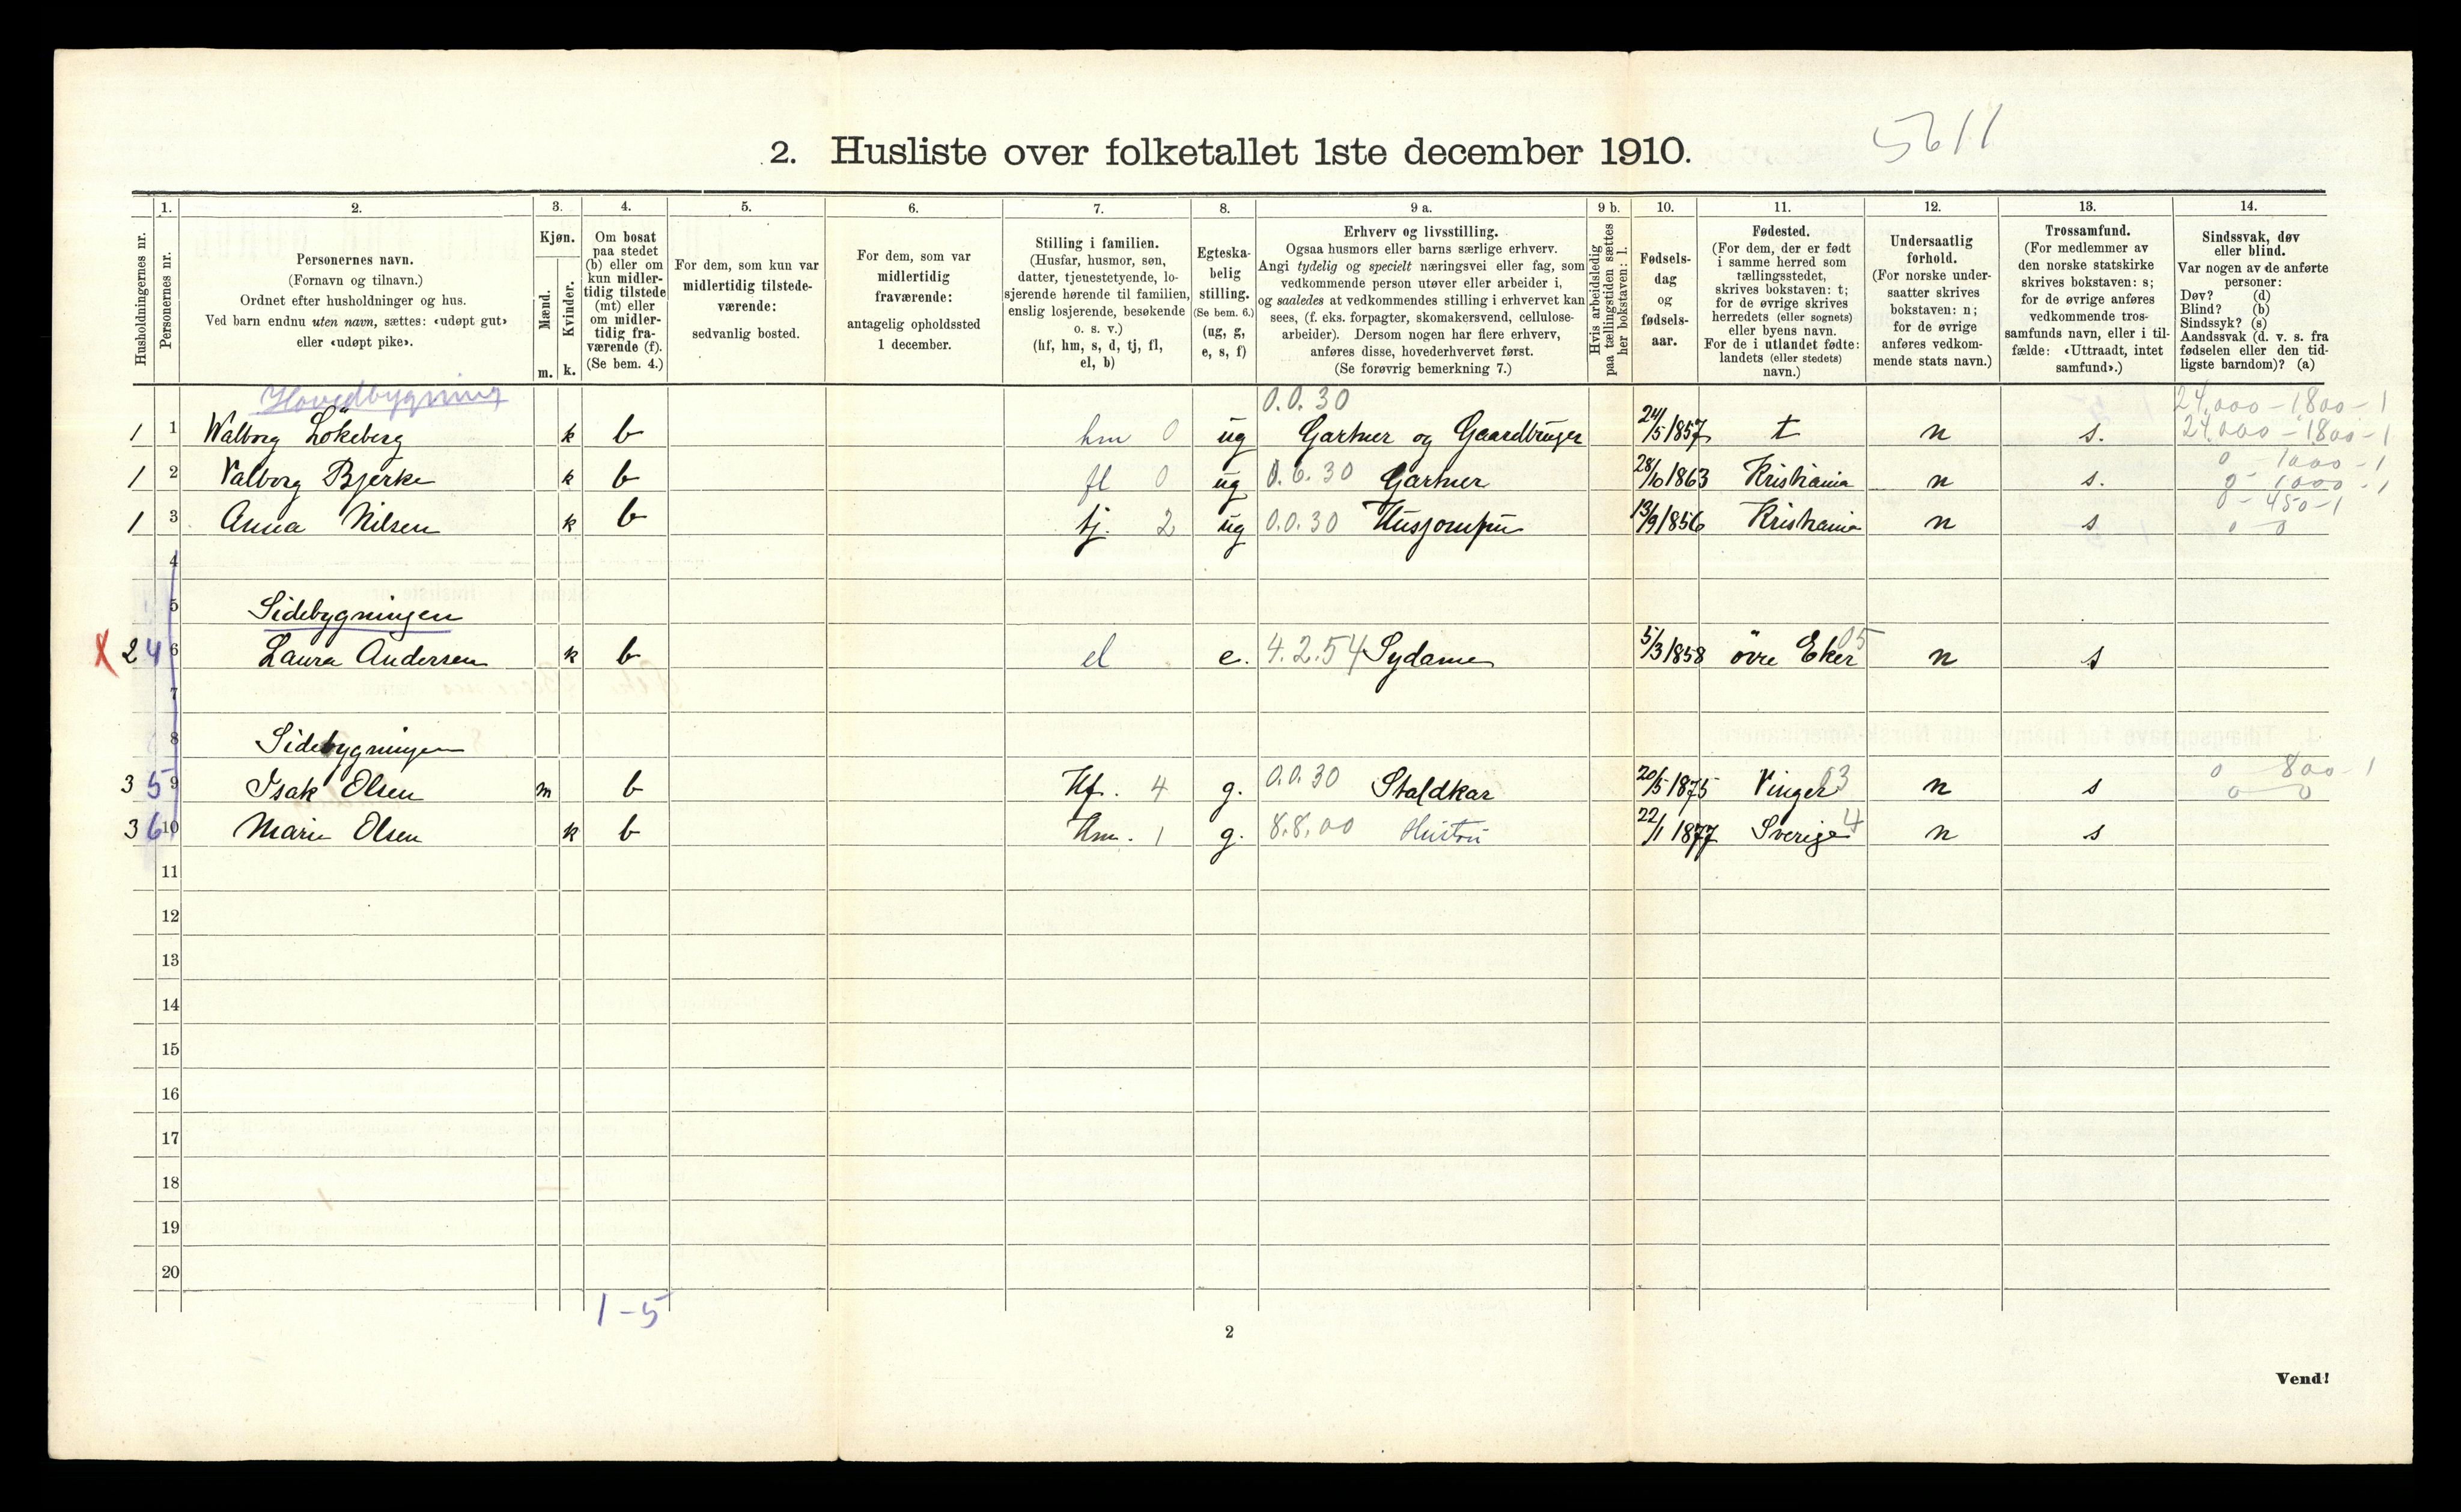 5611
2. Husliste over folketallet 1ste december 1910.
Husholdningernes nr.
1.
Personernes nr.
2.
Personernes navn.
(Fornavn og tilnavn.)
Ordnet efter husholdninger og hus.
Ved barn endnu uten navn, sættes: «udøpt gut»
eller «udøpt pike».
3.
Kjøn.
Mænd.
Kvinder.
m. k.
4.
Om bosat
paa stedet
(b) eller om
kun midler-
tidig tilstede
(mt) eller
om midler-
tidig fra-
værende (f).
(Se bem. 4.)
5.
For dem, som kun var
midlertidig tilstede-
værende:
sedvanlig bosted.
6.
For dem, som var
midlertidig
fraværende:
antagelig opholdssted
1 december.
7.
Stilling i familien.
(Husfar, husmor, søn,
datter, tjenestetyende, lo-
sjerende hørende til familien,
enslig losjerende, besøkende
o. s. v.)
(hf, hm, s, d, tj, fl,
el, b)
8.
Egteska-
belig
stilling.
(Se bem. 6.)
(ug, g,
e, s, f)
9 a.
Erhverv og livsstilling.
Ogsaa husmors eller barns særlige erhverv.
Angi tydelig og specielt næringsvei eller fag, som
vedkommende person utøver eller arbeider i,
og saaledes at vedkommendes stilling i erhvervet kan
sees, (f. eks. forpagter, skomakersvend, cellulose-
arbeider). Dersom nogen har flere erhverv,
anføres disse, hovederhvervet først.
(Se forøvrig bemerkning 7.)
9 b.
Hvis arbeidsledig
paa tællingstiden sættes
her bokstaven: l.
10.
Fødsels-
dag
og
fødsels-
aar.
11.
Fødested.
(For dem, der er født
i samme herred som
tællingsstedet,
skrives bokstaven: t;
for de øvrige skrives
herredets (eller sognets)
eller byens navn.
For de i utlandet fødte:
landets (eller stedets)
navn.)
12.
Undersaatlig
forhold.
(For norske under-
saatter skrives
bokstaven: n;
for de øvrige
anføres vedkom-
mende stats navn.)
13.
Trossamfund.
(For medlemmer av
den norske statskirke
skrives bokstaven: s;
for de øvrige anføres
vedkommende tros-
samfunds navn, eller i til-
fælde: «Uttraadt, intet
samfund».)
14.
Sindssvak, døv
eller blind.
Var nogen av de anførte
personer:
Døv? (d)
Blind? (b)
Sindssyk? (s)
Aandssvak (d. v. s. fra
fødselen eller den tid-
ligste barndom)? (a)
Hovedbygning 0.0.30 24,000 - 1,800 - 1
1 1 Walborg Lökeberg k b hm 0 ug Gartner og Gaardbruger 24/5 1857 t n s. 24,000 - 1800 - 1
0 1000 - 1
1 2 Valborg Bjerke k b fl 0 ug 0.6.30 Gartner 28/10 1863 Kristiania n s. 0 - 1000 - 1
0 - 450 - 1
1 3 Anna Nilsen k b tj. 2 ug 0.0.30 Husjomfru 13/9 1856 Kristiania n s 0 - 0
4
5 Sidebygningen
X 2 4 6 Laura Andersen k b el e. 4.2.54 Sydame 5/3 1858 övre Eker 05 n s
7
8 Sidebygningen
0 800 - 1
3 5 9 Isak Olsen m b Hf. 4 g. 0.0.30 Staldkar 20/5 1875 Vinger 03 n s 0 - 0
3 6 10 Marie Olsen k b Hm. 1 g. 8.8.00 Hustru 22/1 1877 Sverige 4 n s
11
12
13
14
15
16
17
18
19
20
1 - 5
2
Vend!